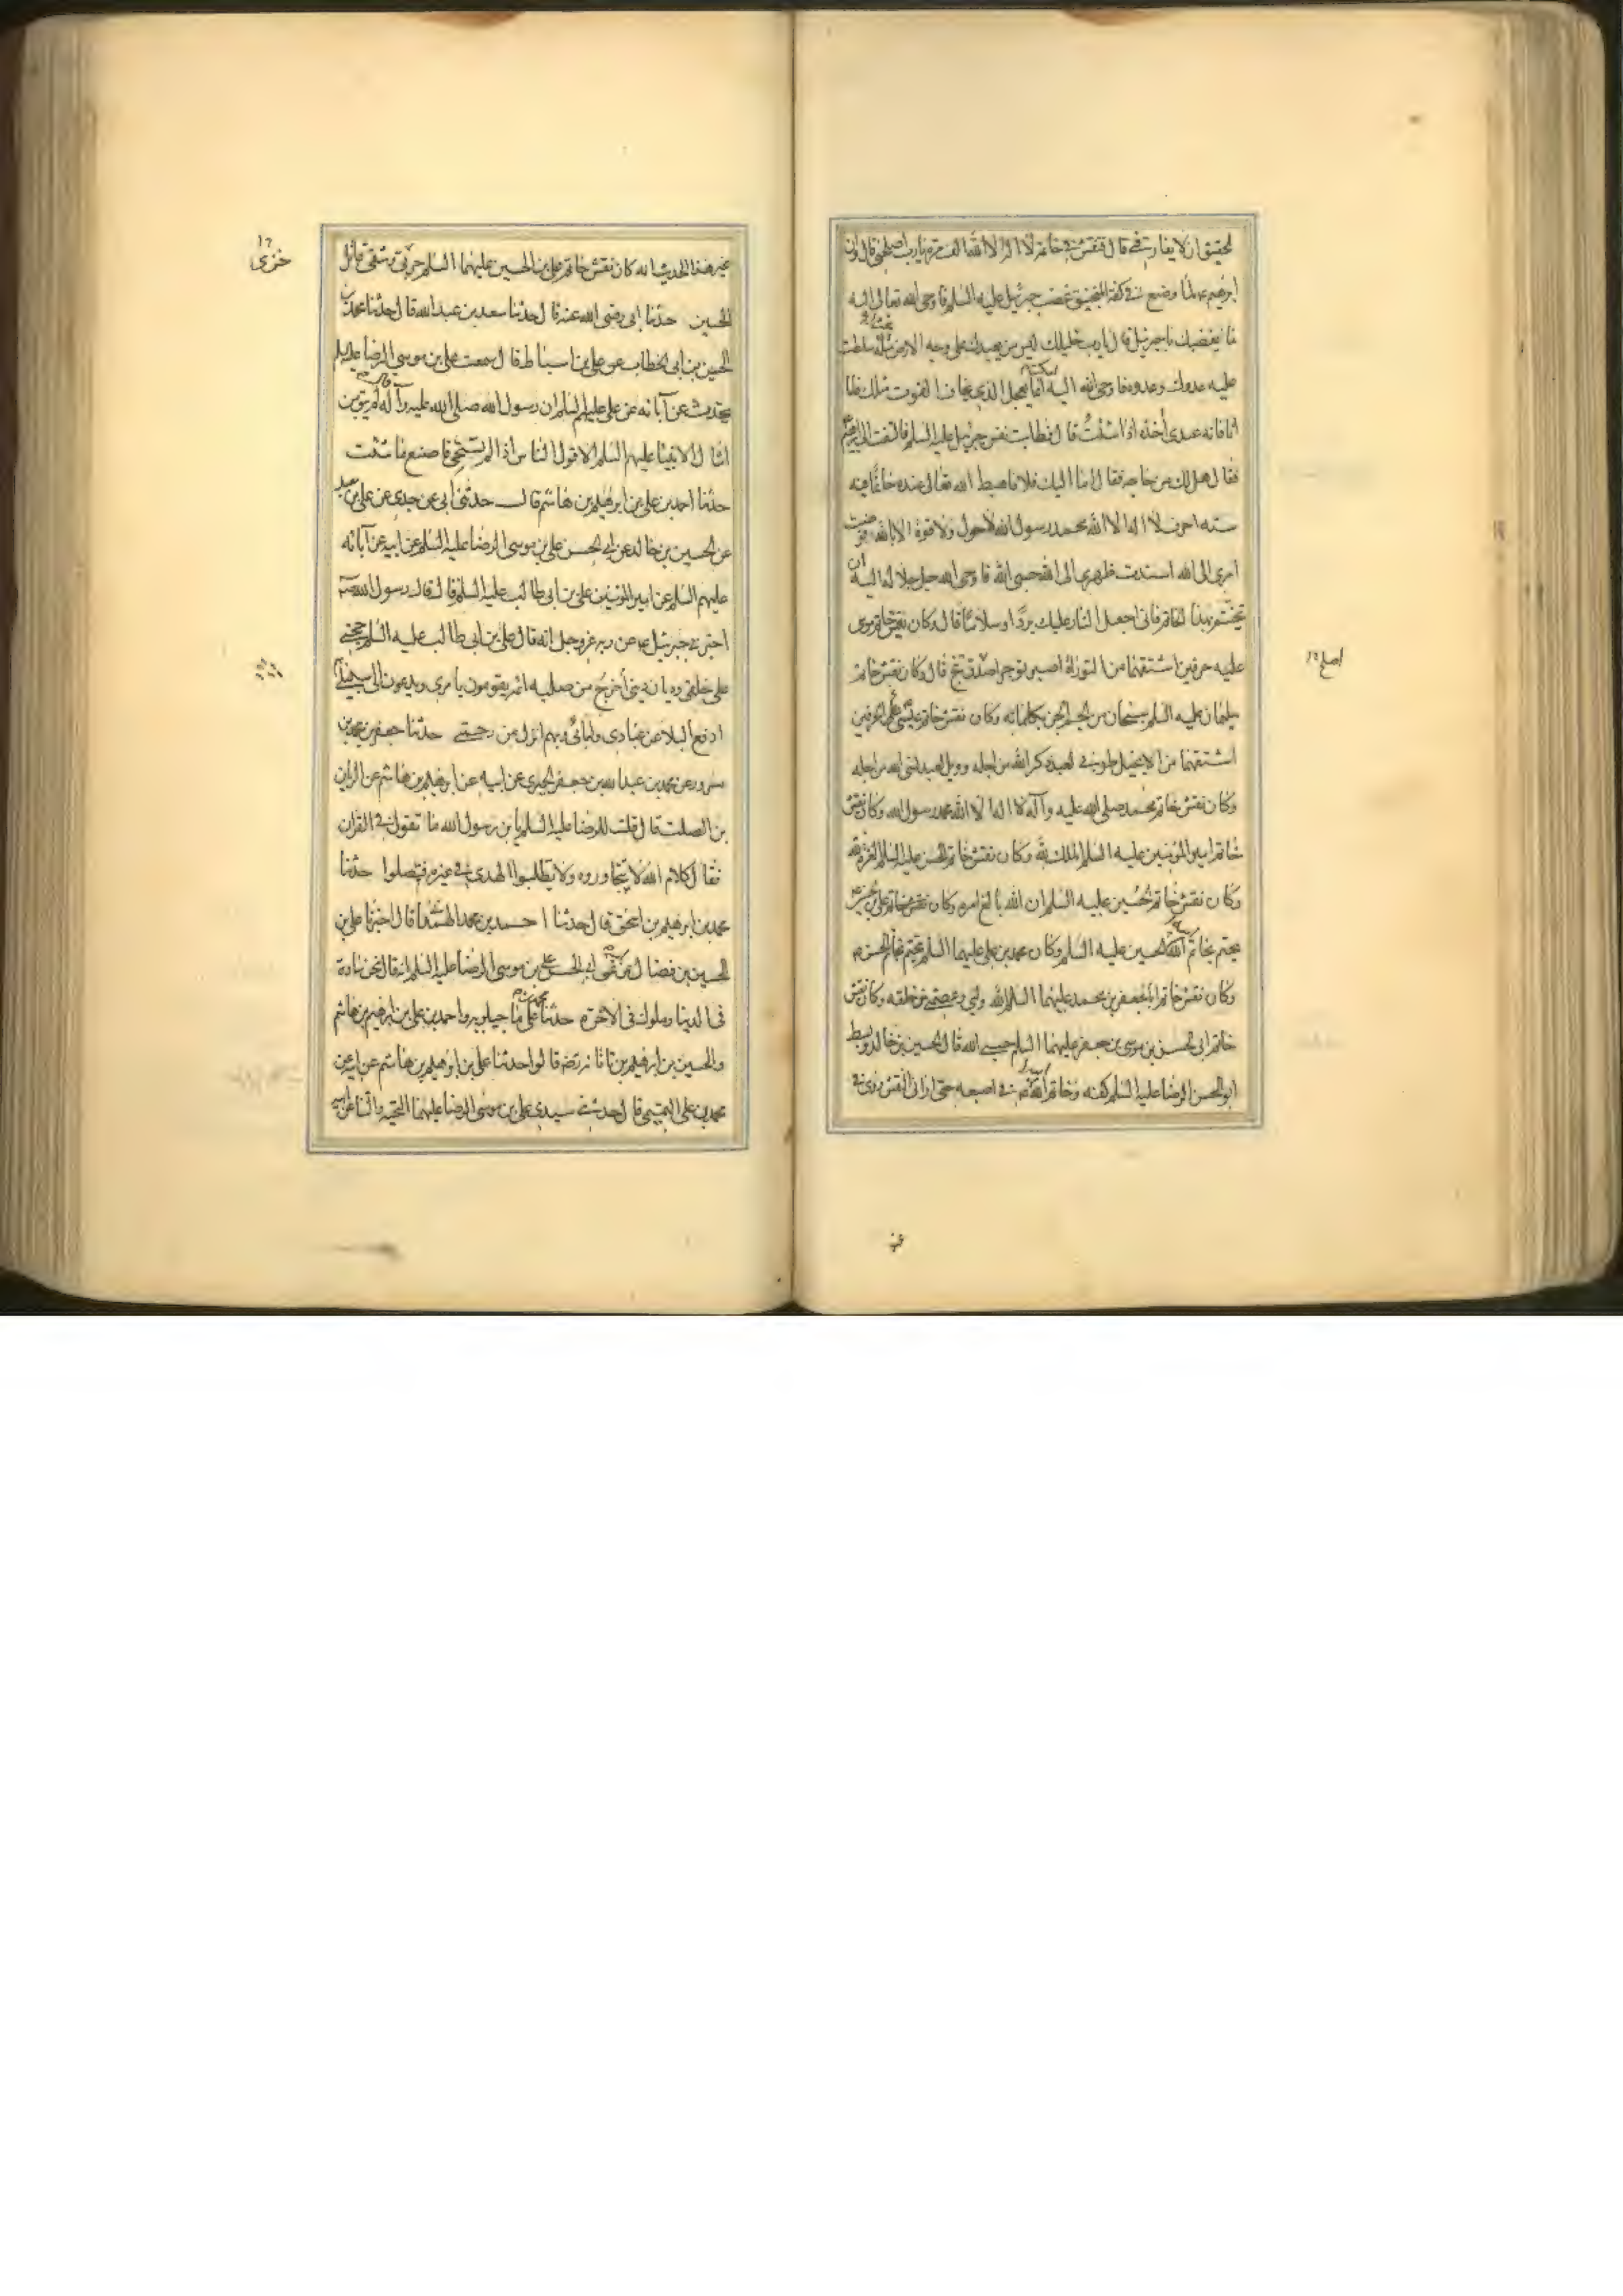 لحقيق ان لا يفارقني قال فنقش في خاتمه لا اله الا الله الف مرة يا رب اصلحني قال وان
ابرهيم ع لما وضع في كفة المنجنيق غضب جبرئيل عليه السلم فاوحى الله تعالى اليه
ما يغضبك يا جبرئيل قال يا رب خليلك ليس من يعبدك على وجه الارض غيره سلطت
عليه عدوك وعدوه فاوحى الله اليه اسكت انما يعجل الذي يخاف الفوت مثلك فاما
انا فانه عبدي آخذه اذا شئت قال فطابت نفس جبرئيل عليه السلم فالتفت الى ابرهيم
فقال هل لك من حاجه فقال اما اليك فلا فاهبط الله تعالى عنده خاتما فيه
سته احرف لا اله الا الله محمد رسول الله لا حول ولا قوة الا بالله فوضت
امرى الى الله اسندت ظهرى الى الله حسبى الله فاوحى الله جل جلاله اليه ان
تختم بهذا الخاتم فانى اجعل النار عليك بردا وسلاما قال وكان نقش خاتم موسى
عليه حرفين اشتقهما من التوراة اصبر توجر اصدق تنج قال وكان نقش خاتم
سليمان عليه السلم سبحان من الجم الجن بكلماته وكان نقش خاتم عيسى حرفين
اشتقهما من الانجيل طوبى لعبد ذكر الله من اجله وويل لعبد نسى الله من اجله
وكان نقش خاتم محمد صلى الله عليه وآله لا اله الا الله محمد رسول الله وكان نقش
خاتم امير المؤمنين عليه السلم الملك لله وكان نقش خاتم الحسن عليه السلم العزة لله
وكان نقش خاتم الحسين عليه السلم ان الله بالغ امره وكان نقش خاتم على بن الحسين
يختم بخاتم ابيه الحسين عليه السلم وكان محمد بن على عليهما السلم يختم بخاتم الحسين
وكان نقش خاتم جعفر بن محمد عليهما السلم الله وليى وعصمتى من خلقه وكان نقش
خاتم ابى الحسن موسى بن جعفر عليهما السلم حسبى الله قال الحسين بن خالد وبسط
ابو الحسن الرضا عليه السلم كفه وخاتم ابيه في اصبعه حتى ارانى النقش وروى فى
اصل
غير هذا الحديث انه كان نقش خاتم على بن الحسين عليهما السلم خزى وشقى قاتل
الحسين حدثنا ابى رضى الله عنه قال حدثنا سعد بن عبد الله قال حدثنا محمد بن
الحسين بن ابى الخطاب عن على بن اسباط قال سمعت على بن موسى الرضا عليه السلم
يحدث عن آبائه عن على عليهم السلم ان رسول الله صلى الله عليه وآله قال لم يبق من
امثال الانبيا عليهم السلم الا قول الناس اذا لم تستحى فاصنع ما شئت
حدثنا احمد بن على بن ابرهيم بن هاشم قال حدثنى ابى عن جدى عن على بن معبد
عن الحسين بن خالد عن ابى الحسن على بن موسى الرضا عليه السلم عن ابيه عن آبائه
عليهم السلم عن امير المؤمنين على بن ابى طالب عليه السلم قال قال رسول الله
اخبرنى جبرئيل ع عن ربه عز وجل انه قال على بن ابى طالب عليه السلم حجتى
على خلقى وديان دينى أخرج من صلبه ائمة يقومون بامرى ويدعون الى سبيلى
ادفع البلا عن عبادى وامائى وبهم انزل من رحمتى حدثنا جعفر بن محمد بن
مسرور عن محمد بن عبد الله بن جعفر الحميرى عن ابيه عن ابرهيم بن هاشم عن الريان
بن الصلت قال قلت للرضا عليه السلم يا بن رسول الله ما تقول في القرآن
فقال كلام الله لا تتجاوزوه ولا تطلبوا الهدى فى غيره فتضلوا حدثنا
محمد بن ابرهيم بن اسحق قال حدثنا احمد بن محمد الهمدانى قال اخبرنا على بن
الحسين بن فضال عن ابيه عن ابى الحسن على بن موسى الرضا عليه السلم انه قال نحن سادة
فى الدنيا وملوك فى الآخرة حدثنا محمد بن على ماجيلويه واحمد بن على بن ابرهيم بن هاشم
والحسين بن ابرهيم بن تاتانه رضه قالوا حدثنا على بن ابرهيم بن هاشم عن ابيه عن
محمد بن على التميمى قال حدثنى سيدى على بن موسى الرضا عليهما التحية والثنا عن ابيه
خزى